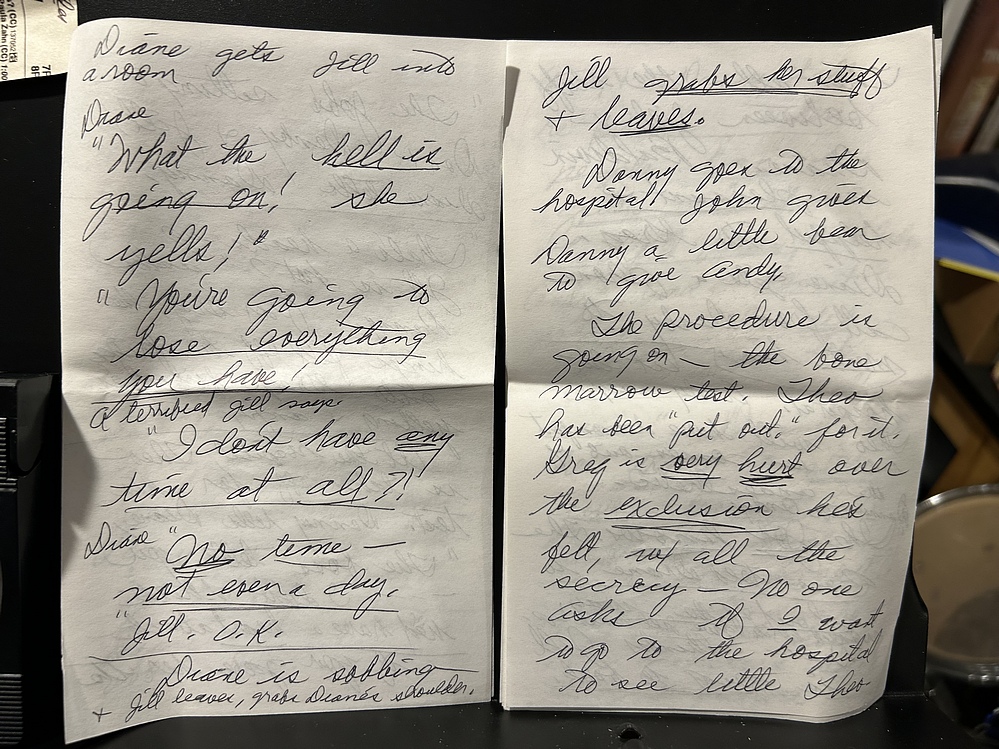 Diane gets Jill into
a room
Diane
"What the hell is
going on! she
yells!"
"You're going to
lose everything
you have!
A terrified Jill says
"I don't have any
time at all?!
Diane "No time —
not even a day.
"Jill. O.K.
Diane is sobbing
+ Jill leaves, grabs Diane's shoulder.
Jill grabs her stuff
+ leaves.
Danny goes to the
hospital. John gives
Danny a little bear
to give Andy.
The procedure is
going on — the bone
marrow test. Theo
has been "put out." for it.
Greg is very hurt over
the exclusion he's
felt, w/ all the
secrecy — No one
asks if I want
to go to the hospital
to see little Theo
Paula Zahn (CC) 1:00